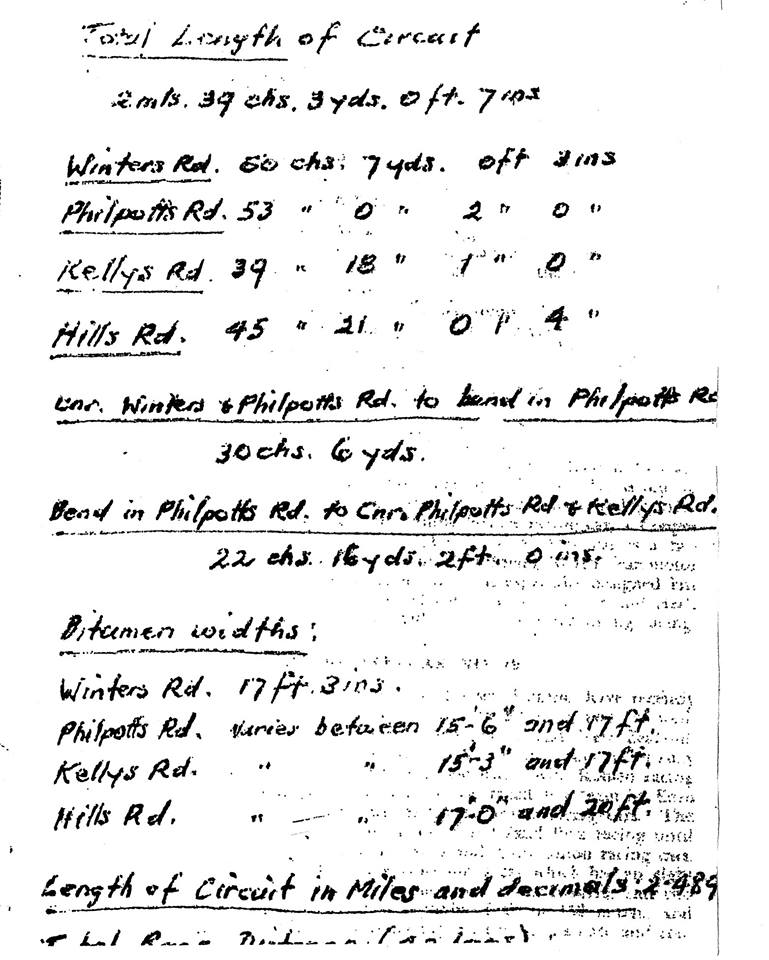 Total Length of Circuit
2 mls. 39 chs. 3 yds. 0 ft. 7 ins
Winters Rd. 60 chs. 7 yds. 0 ft 3 ins
Philpotts Rd. 53 " 0 " 2 " 0 "
Kellys Rd 39 " 18 " 1 " 0 "
Hills Rd. 45 " 21 " 0 " 4 "
Cnr. Winters & Philpotts Rd. to bend in Philpotts Rd
30 chs. 6 yds.
Bend in Philpotts Rd. to Cnr. Philpotts Rd & Kellys Rd.
22 chs. 16 yds. 2 ft. 0 ins.
Bitumen widths:
Winters Rd. 17 ft. 3 ins.
Philpotts Rd. varies between 15'-6" and 17 ft.
Kellys Rd. " " 15'-3" and 17 ft.
Hills Rd. " — " 17'-0" and 20 ft.
Length of Circuit in Miles and decimals: 2·489